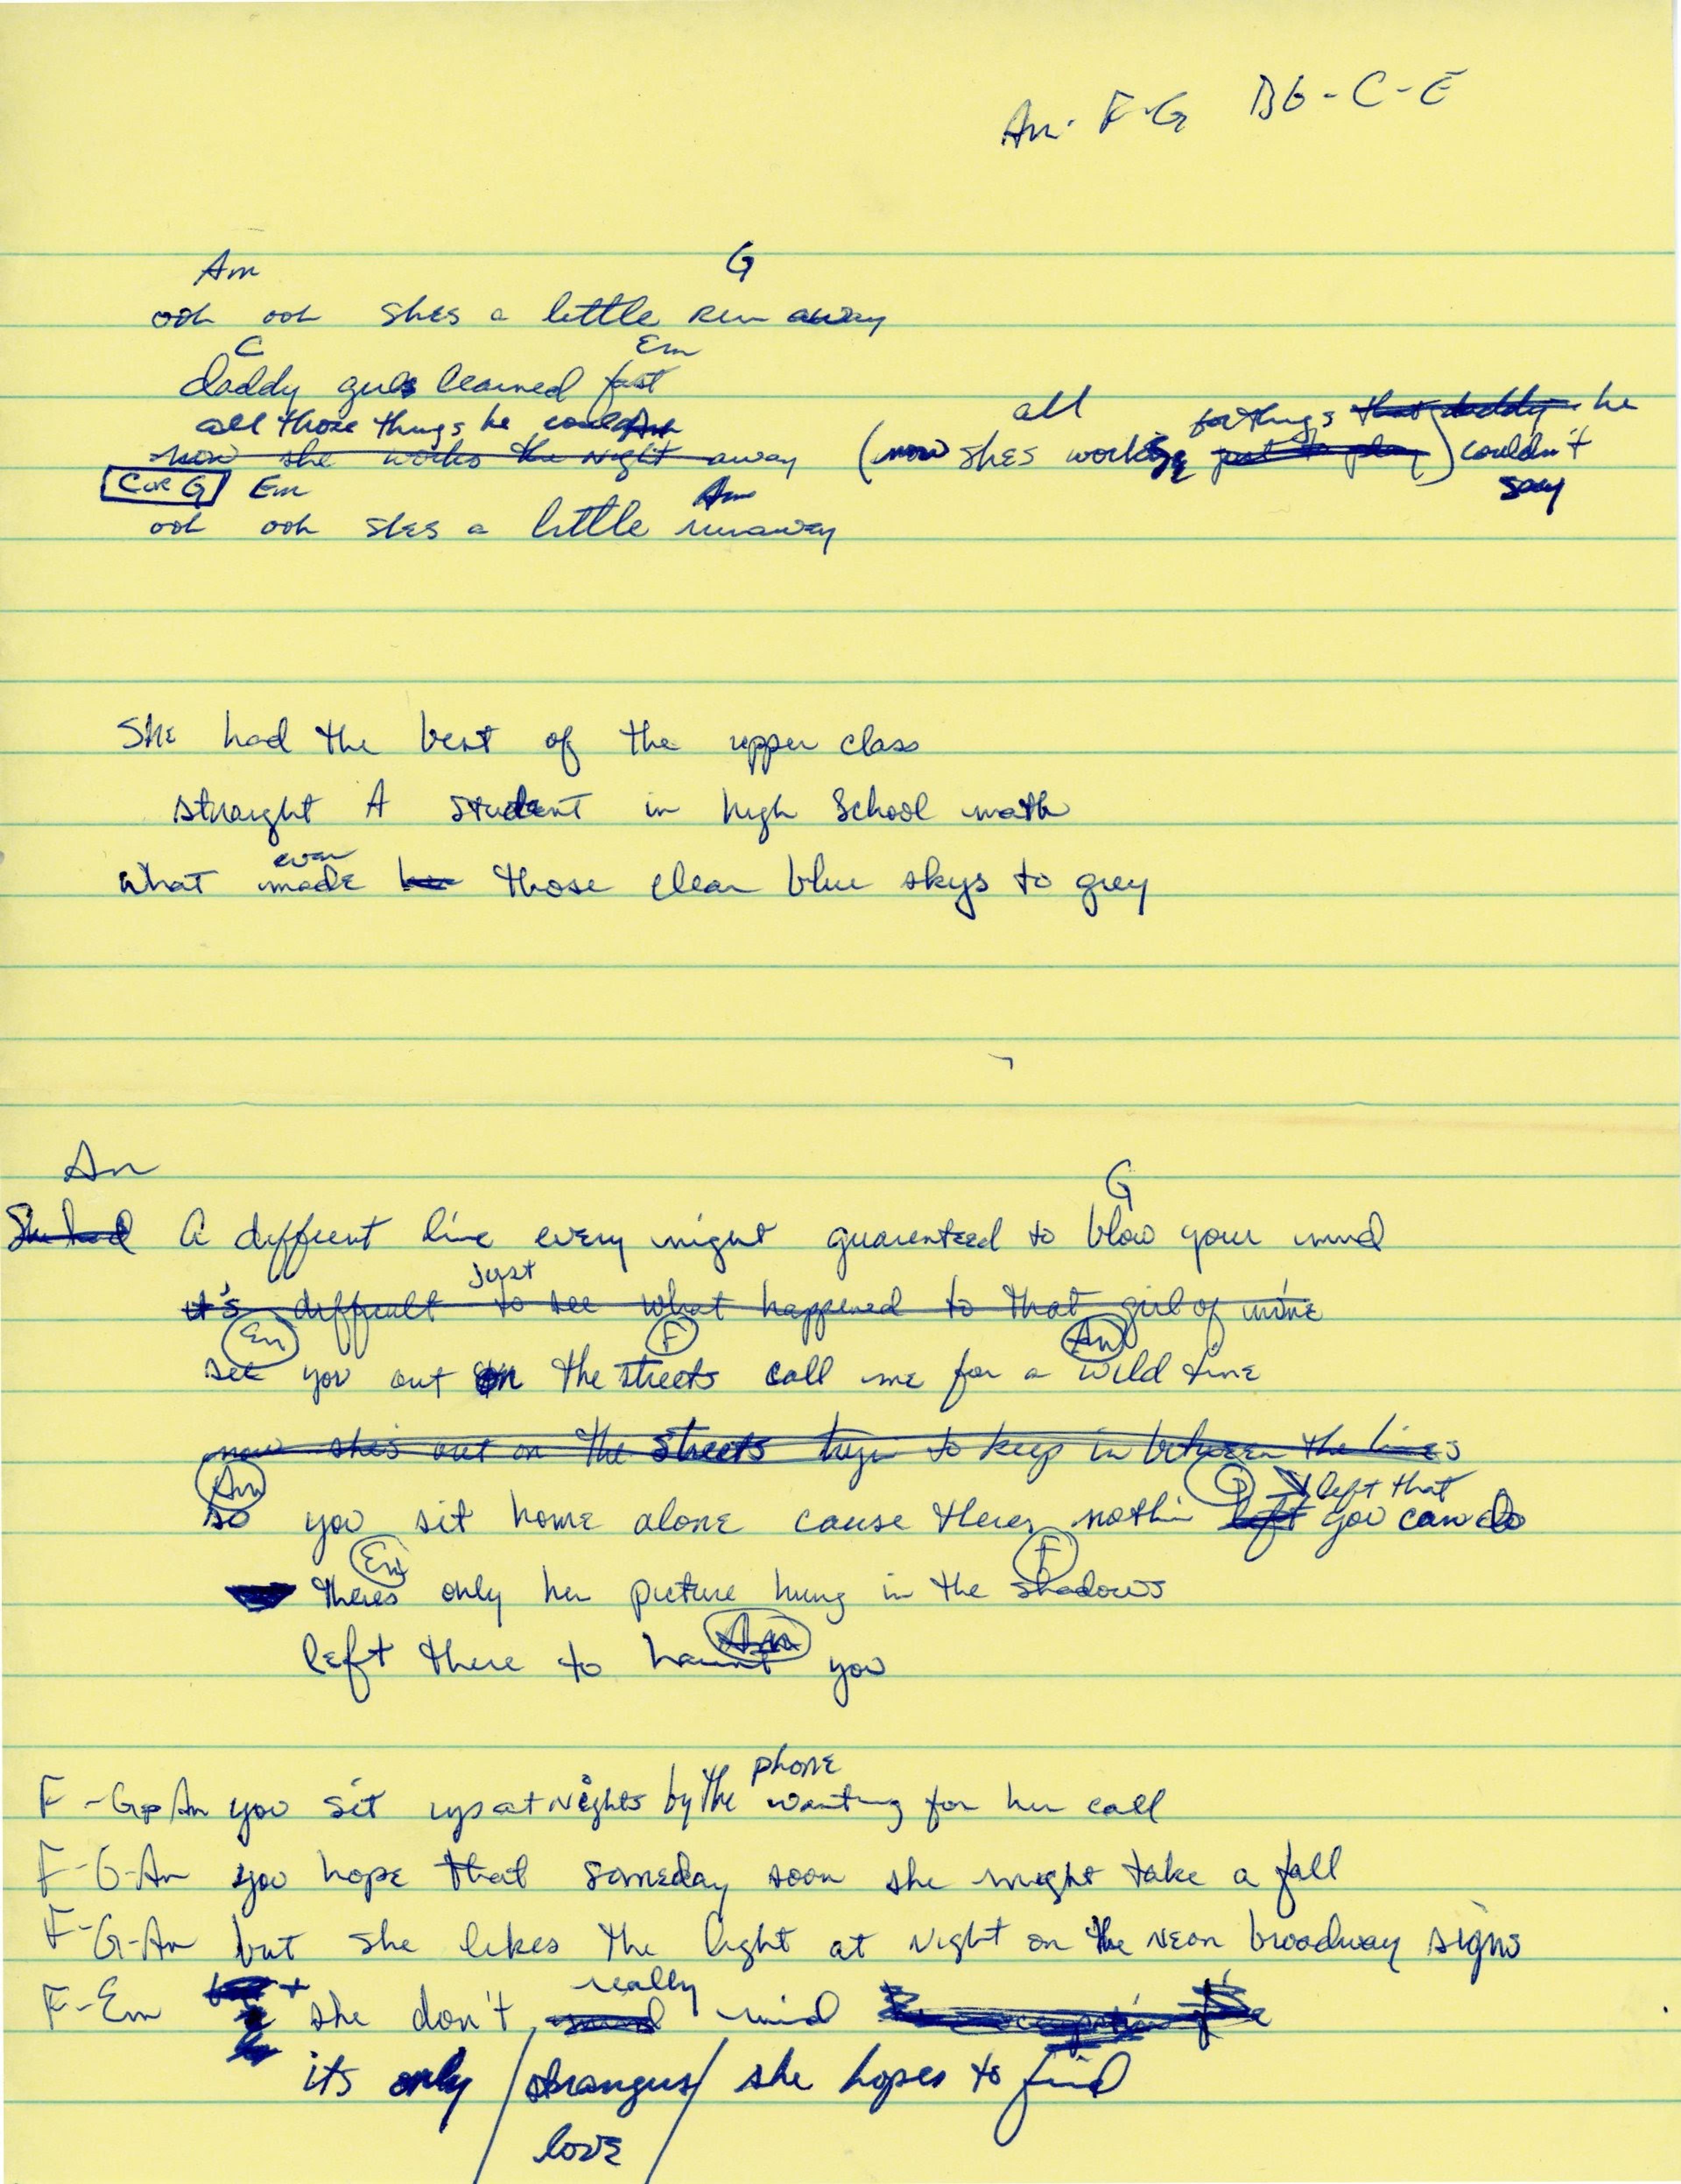 Am - F - G Bb - C - E
Am G
ooh ooh shes a little run away
C Em
daddy girls learned fast
all those things he all for things that daddy he
now she works the night away (now shes working just to play) couldn't
C or G Em Am say
ooh ooh shes a little runaway
She had the best of the upper class
straight A student in high School math
ever
what made her those clear blue skys to grey
Am G
She had A diffrent line every night guarenteed to blow your mind
Just
it's difficult to see what happened to that girl of mine
Em F Am
see you out on the streets call me for a wild time
now she's out on the streets tryin to keep in between the lines
Am G left that
so you sit home alone cause theres nothin left you can do
Em F
theres only her picture hung in the shadows
Am
left there to haunt you
phone
F - G - Am you sit up at nights by the waiting for her call
F - G - Am you hope that someday soon she might take a fall
F - G - Am but she likes the light at night on the neon broadway signs
really
F - Em she don't mind mind
its only / strangers / she hopes to find
love